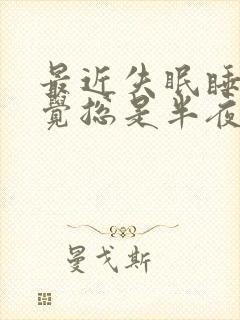 最近失眠睡
覺總是半夜
曼戈斯